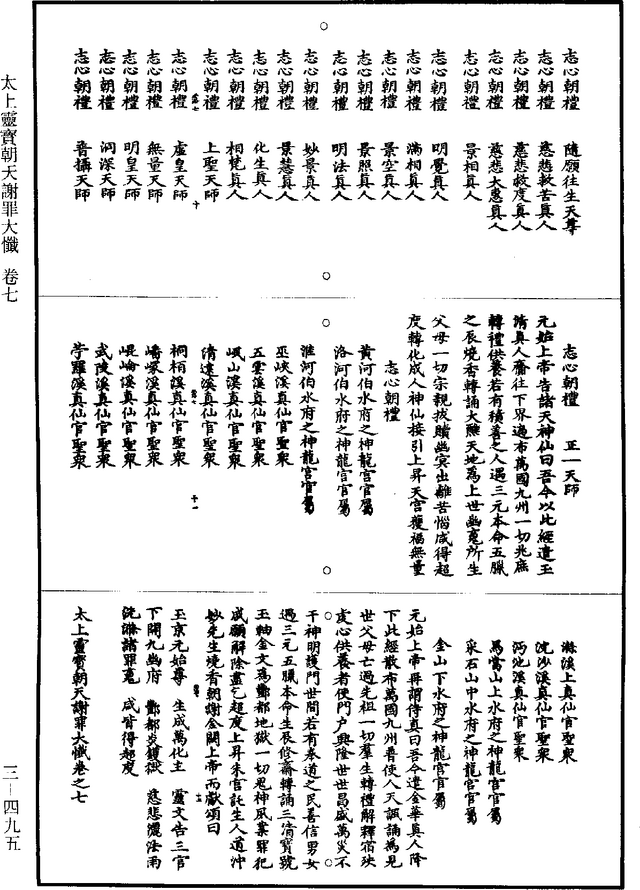 太上靈寶朝天謝罪大懺 卷七
三－四九五
志心朝禮 隨願往生天尊
志心朝禮 慈悲救苦真人
志心朝禮 慈悲救度真人
志心朝禮 慈悲大惠真人
志心朝禮 景相真人
志心朝禮 明覺真人
志心朝禮 滿相真人
志心朝禮 景空真人
志心朝禮 景照真人
志心朝禮 明法真人
志心朝禮 妙景真人
志心朝禮 景慧真人
志心朝禮 化生真人
志心朝禮 相梵真人
志心朝禮 上聖天師
志心朝禮 虛皇天師
志心朝禮 無量天師
志心朝禮 明皇天師
志心朝禮 洞深天師
志心朝禮 普攝天師
志心朝禮 正一天師
元始上帝告諸天神仙曰吾今以此經遣玉
清真人齎往下界過布萬國九州一切兆庶
轉禮供養若有積善之人遇三元本命五臘
之辰燒香轉誦大懺天地為上世幽魂所生
父母一切宗親拔贖幽冥出離苦惱咸得超
度轉化成人神仙接引上昇天宮獲福無量
志心朝禮
黃河伯水府之神龍宮官屬
洛河伯水府之神龍宮官屬
淮河伯水府之神龍宮官屬
巫峽溪真仙官聖衆
五雲溪真仙官聖衆
岷山溪真仙官聖衆
清遠溪真仙官聖衆
桐栢溪真仙官聖衆
嶓冢溪真仙官聖衆
崐崘溪真仙官聖衆
武陵溪真仙官聖衆
苧羅溪真仙官聖衆
溪上真仙官聖衆
沈沙溪真仙官聖衆
沔池溪真仙官聖衆
馬當山上水府之神龍宮官屬
采石山中水府之神龍宮官屬
金山下水府之神龍宮官屬
元始上帝再謂侍真曰吾今遣金華真人降
下此經散布萬國九州普使人天諷誦為見
世父母亡過先祖一切羣生轉禮解釋宿殃
虔心供養者使門戶興隆世世昌盛萬災不
干神明護門世間若有奉道之民善信男女
遇三元五臘本命生辰修齋轉誦三清寶號
玉軸金文為酆都地獄一切鬼神夙業罪犯
咸願解除盡乞超度上昇朱宮託生人道沖
妙先生燒香朝謝金闕上帝而獻頌曰
玉京元始尊 生成萬化主 靈文告三官
下開九幽府 酆都息鑊湯 慈悲灑法雨
洗滌諸罪冤 咸皆得超度
太上靈寶朝天謝罪大懺卷之七